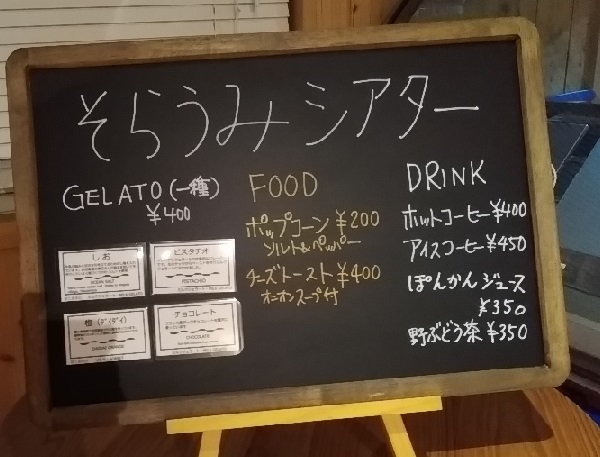 そらうみシアター
GELATO (一種)
¥400
しお
ピスタチオ
PISTACHIO
橙 (ダイダイ)
チョコレート
CHOCOLATE
FOOD
ポップコーン ¥200
ソルト&ペッパー
チーズトースト ¥400
オニオンスープ付
DRINK
ホットコーヒー ¥400
アイスコーヒー ¥450
ぽんかんジュース
¥350
野ぶどう茶 ¥350